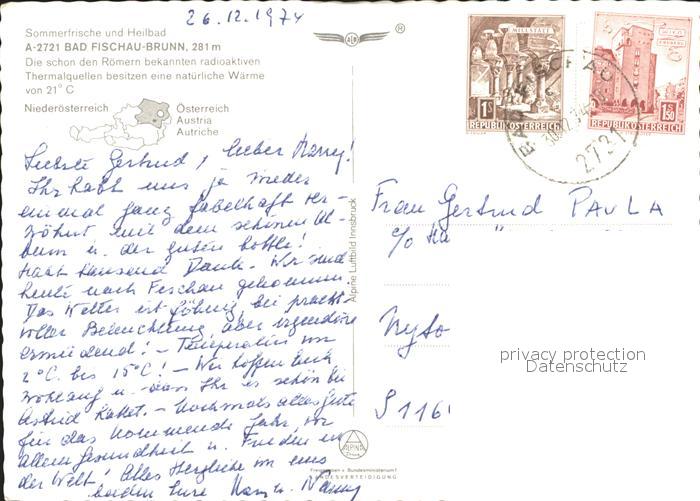 26.12.1974
Sommerfrische und Heilbad
A-2721 BAD FISCHAU-BRUNN, 281 m
Die schon den Römern bekannten radioaktiven
Thermalquellen besitzen eine natürliche Wärme
von 21° C
Niederösterreich
Österreich
Austria
Autriche
Liebste Gertrud, lieber Harry!
Ihr habt uns ja wieder
einmal ganz fabelhaft ver-
wöhnt mit dem schönen Al-
bum u. der guten
tausend Dank. Wir sind
heute nach Fischau gekommen.
Das Wetter ist föhnig, bei pracht-
voller Beleuchtung aber irgendwie
ermüdend! - Temperatur von
2°C. bis 15°C! - Wir hoffen Euch
wohlauf u. dass Ihr es schön bei
Astrid hattet. - Nochmals alles Gute
für das kommende Jahr, vor
allem Gesundheit u. Frieden in
der Welt! Alles Herzliche von uns
beiden Eure
Alpine Luftbild Innsbruck
ALPINE
BUNDESMINISTERIUM F
LANDESVERTEIDIGUNG
MILLSTATT
1 S
REPUBLIK ÖSTERREICH
1.50
REPUBLIK ÖSTERREICH
2721
Frau Gertrud PAULA
c/o Ha
Nyto
S 116
privacy protection
Datenschutz